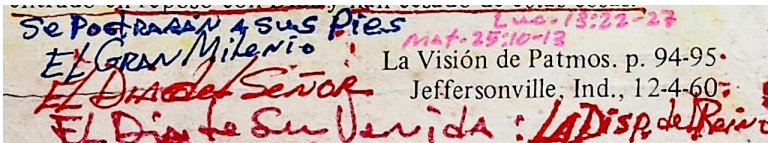 Se Postrarán a sus Pies Luc. 13:22-27
Mat. 25:10-13
El Gran Milenio
La Visión de Patmos. p. 94-95.
El Dia del Señor Jeffersonville, Ind., 12-4-60.
El Dia de Su Venida: La Disp. del Reino